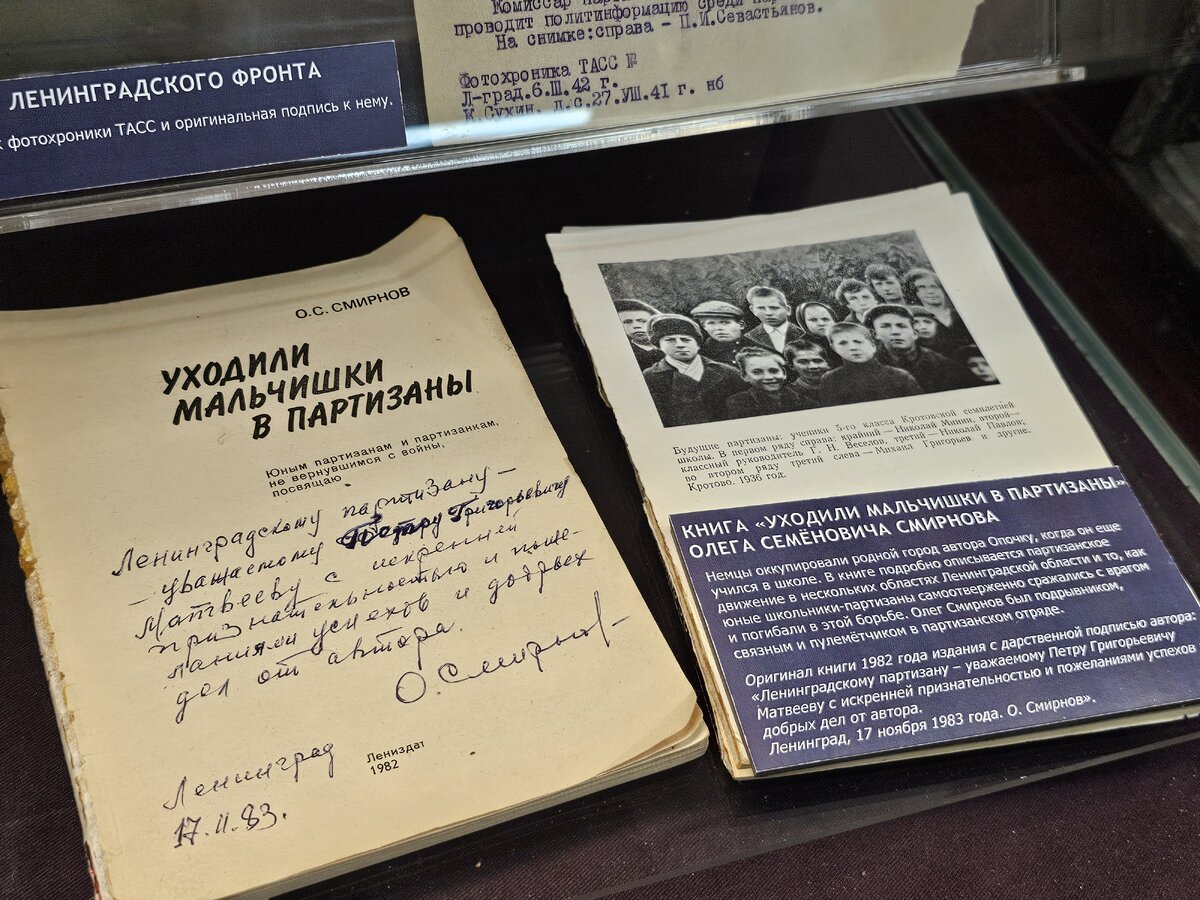 ЛЕНИНГРАДСКОГО ФРОНТА
фотохроники ТАСС и оригинальная подпись к нему.
Комиссар
проводит политинформацию среди
На снимке:справа – П.И.Севастьянов.
Фотохроника ТАСС №
Л-град.6.III.42 г.
К.Сухин, д.с.27.УШ.41 г. нб
О.С. СМИРНОВ
УХОДИЛИ
МАЛЬЧИШКИ
В ПАРТИЗАНЫ
Юным партизанам и партизанкам,
не вернувшимся с войны,
посвящаю
Ленинградскому партизану –
– уважаемому Петру Григорьевичу
Матвееву с искренней
признательностью и поже-
ланиями успехов и добрых
дел от автора.
О. Смирнов
Ленинград
17.11.83.
Лениздат
1982
Будущие партизаны: ученики 5-го класса Кротовской семилетней
школы. В первом ряду справа: крайний — Николай Минин, второй —
классный руководитель Г. Н. Веселов, третий — Николай Павлов;
во втором ряду третий слева — Михаил Григорьев и другие.
Кротово. 1936 год.
КНИГА «УХОДИЛИ МАЛЬЧИШКИ В ПАРТИЗАНЫ»
ОЛЕГА СЕМЁНОВИЧА СМИРНОВА
Немцы оккупировали родной город автора Опочку, когда он еще
учился в школе. В книге подробно описывается партизанское
движение в нескольких областях Ленинградской области и то, как
юные школьники-партизаны самоотверженно сражались с врагом
и погибали в этой борьбе. Олег Смирнов был подрывником,
связным и пулемётчиком в партизанском отряде.
Оригинал книги 1982 года издания с дарственной подписью автора:
«Ленинградскому партизану – уважаемому Петру Григорьевичу
Матвееву с искренней признательностью и пожеланиями успехов
добрых дел от автора.
Ленинград, 17 ноября 1983 года. О. Смирнов».